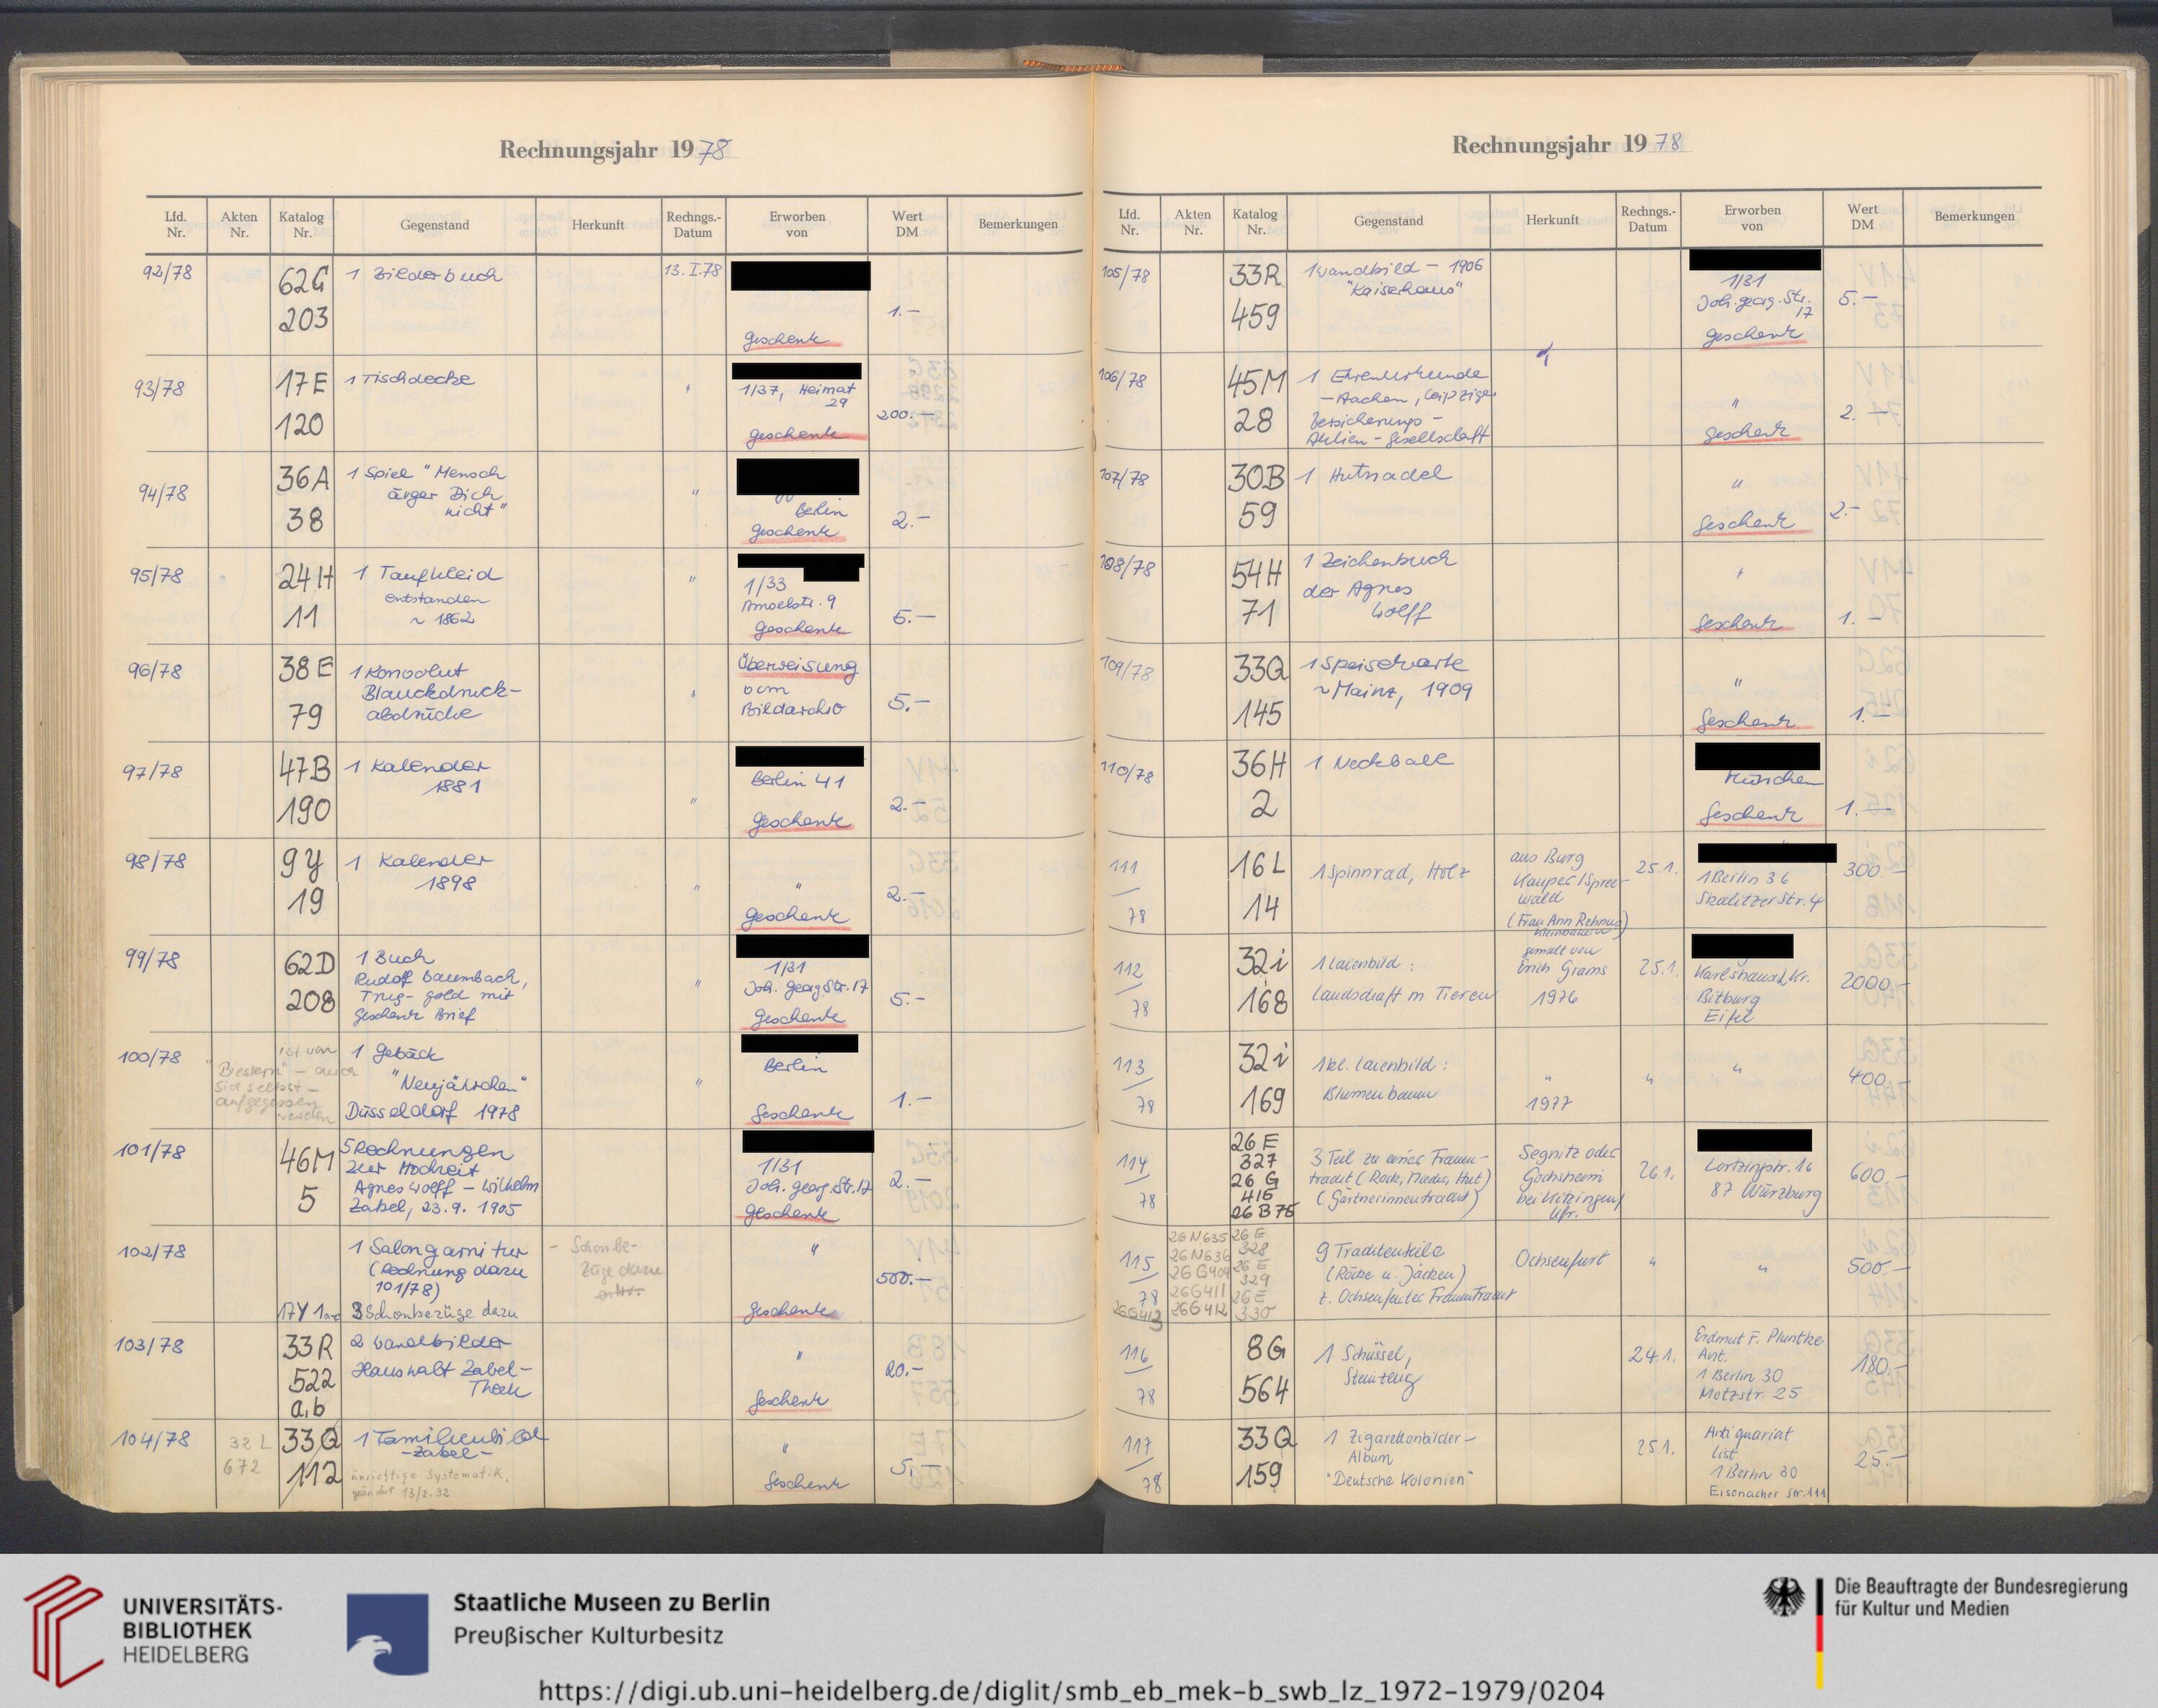 Rechnungsjahr 1978
Lfd. Nr.
Akten Nr.
Katalog Nr.
Gegenstand
Herkunft
Rechngs.-Datum
Erworben von
Wert DM
Bemerkungen
92/78
62G
203
1 Bilderbuch
13.I.78
Geschenk
1.–
93/78
17E
120
1 Tischdecke
"
1/37, Heimat
29
Geschenk
200.–
94/78
36A
38
1 Spiel "Mensch
ärger Dich
nicht"
"
Berlin
Geschenk
2.–
95/78
24H
11
1 Taufkleid
entstanden
~ 1862
"
1/33
Amselstr. 9
Geschenk
5.–
96/78
38E
79
1 Konvolut
Blauckdruck-
abdrücke
"
Überweisung
vom
Bildarchiv
5.–
97/78
47B
190
1 Kalender
1881
"
Berlin 41
Geschenk
2.–
98/78
9y
19
1 Kalender
1898
"
"
Geschenk
2.–
99/78
62D
208
1 Buch
Rudolf Baumbach,
Trug-Gold mit
Geschenk Brief
"
1/31
Joh. Georg Str. 17
Geschenk
5.–
100/78
ist von
"Biestern" – auch
sich selbst –
aufgegessen
worden
1 Gebäck
"Neujährchen"
Düsseldorf 1978
"
Berlin
Geschenk
1.–
101/78
46M
5
5 Rechnungen
zur Hochzeit
Agnes Wolff – Wilhelm
Zabel, 23.9.1905
1/31
Joh. Georg. Str. 17
Geschenk
2.–
102/78
1 Salongarnitur
(Rechnung dazu
101/78)
17Y
3 Schonbezüge dazu
– Schonbe-
züge dazu
"
Geschenk
500.–
103/78
33R
522
a,b
2 Wandbilder
Haushalt Zabel-
Theek
"
Geschenk
20.–
104/78
32 L
672
33Q
112
1 Familienbild
– Zabel –
unrichtige Systematik,
geändert 13/2.92
"
Geschenk
5.–
Rechnungsjahr 1978
Lfd. Nr.
Akten Nr.
Katalog Nr.
Gegenstand
Herkunft
Rechngs.-Datum
Erworben von
Wert DM
Bemerkungen
105/78
33R
459
1 Wandbild – 1906
"Kaiserhaus"
1/31
Joh. Georg. Str.
17
Geschenk
5.–
106/78
45M
28
1 Ehrenurkunde
– Aachen, Leipziger
Versicherungs-
Aktien-Gesellschaft
"
Geschenk
2.–
107/78
30B
59
1 Hutnadel
"
Geschenk
2.–
108/78
54H
71
1 Zeichenbuch
der Agnes
Wolff
"
Geschenk
1.–
109/78
33Q
145
1 Speisekarte
~ Mainz, 1909
"
Geschenk
1.–
110/78
36H
2
1 Neckball
München
Geschenk
1.–
111
78
16L
14
1 Spinnrad, Holz
aus Burg
Kauper/Spree-
wald
(Frau Ann Rehnus)
25.1.
1 Berlin 36
Skalitzer Str. 4
300.–
112
78
32i
168
1 Laienbild:
Landschaft m Tieren
gemalt von
Erich Grams
1976
25.1.
Karlshausen, Kr.
Bitburg
Eifel
2000.–
113
78
32i
169
1 kl. Laienbild:
Blumenbaum
"
1977
"
"
400.–
114
78
26 E
327
26 G
415
26 B 75
3 Teil zu einer Frauen-
tracht (Rock, Mieder, Hut)
(Gärtnerinnentracht)
Segnitz oder
Gochsheim
bei Kitzingen/
Ufr.
26.1.
Lortzingstr. 16
87 Würzburg
600.–
115
78
26G413
26 N635
26 N636
26 G404
26G411
26G412
26 E
328
26 E
329
26 E
330
9 Trachtenteile
(Röcke u. Jacken)
z. Ochsenfurter Frauentracht
Ochsenfurt
"
"
500.–
116
78
8G
564
1 Schüssel,
Steinzeug
24.1.
Erdmut F. Pluntke
Ant.
1 Berlin 30
Motzstr. 25
180.–
117
78
33Q
159
1 Zigarettenbilder-
Album
"Deutsche Kolonien"
25.1.
Antiquariat
List
1 Berlin 30
Eisenacher Str. 111
25.–
UNIVERSITÄTS-
BIBLIOTHEK
HEIDELBERG
Staatliche Museen zu Berlin
Preußischer Kulturbesitz
Die Beauftragte der Bundesregierung
für Kultur und Medien
https://digi.ub.uni-heidelberg.de/diglit/smb_eb_mek-b_swb_lz_1972-1979/0204